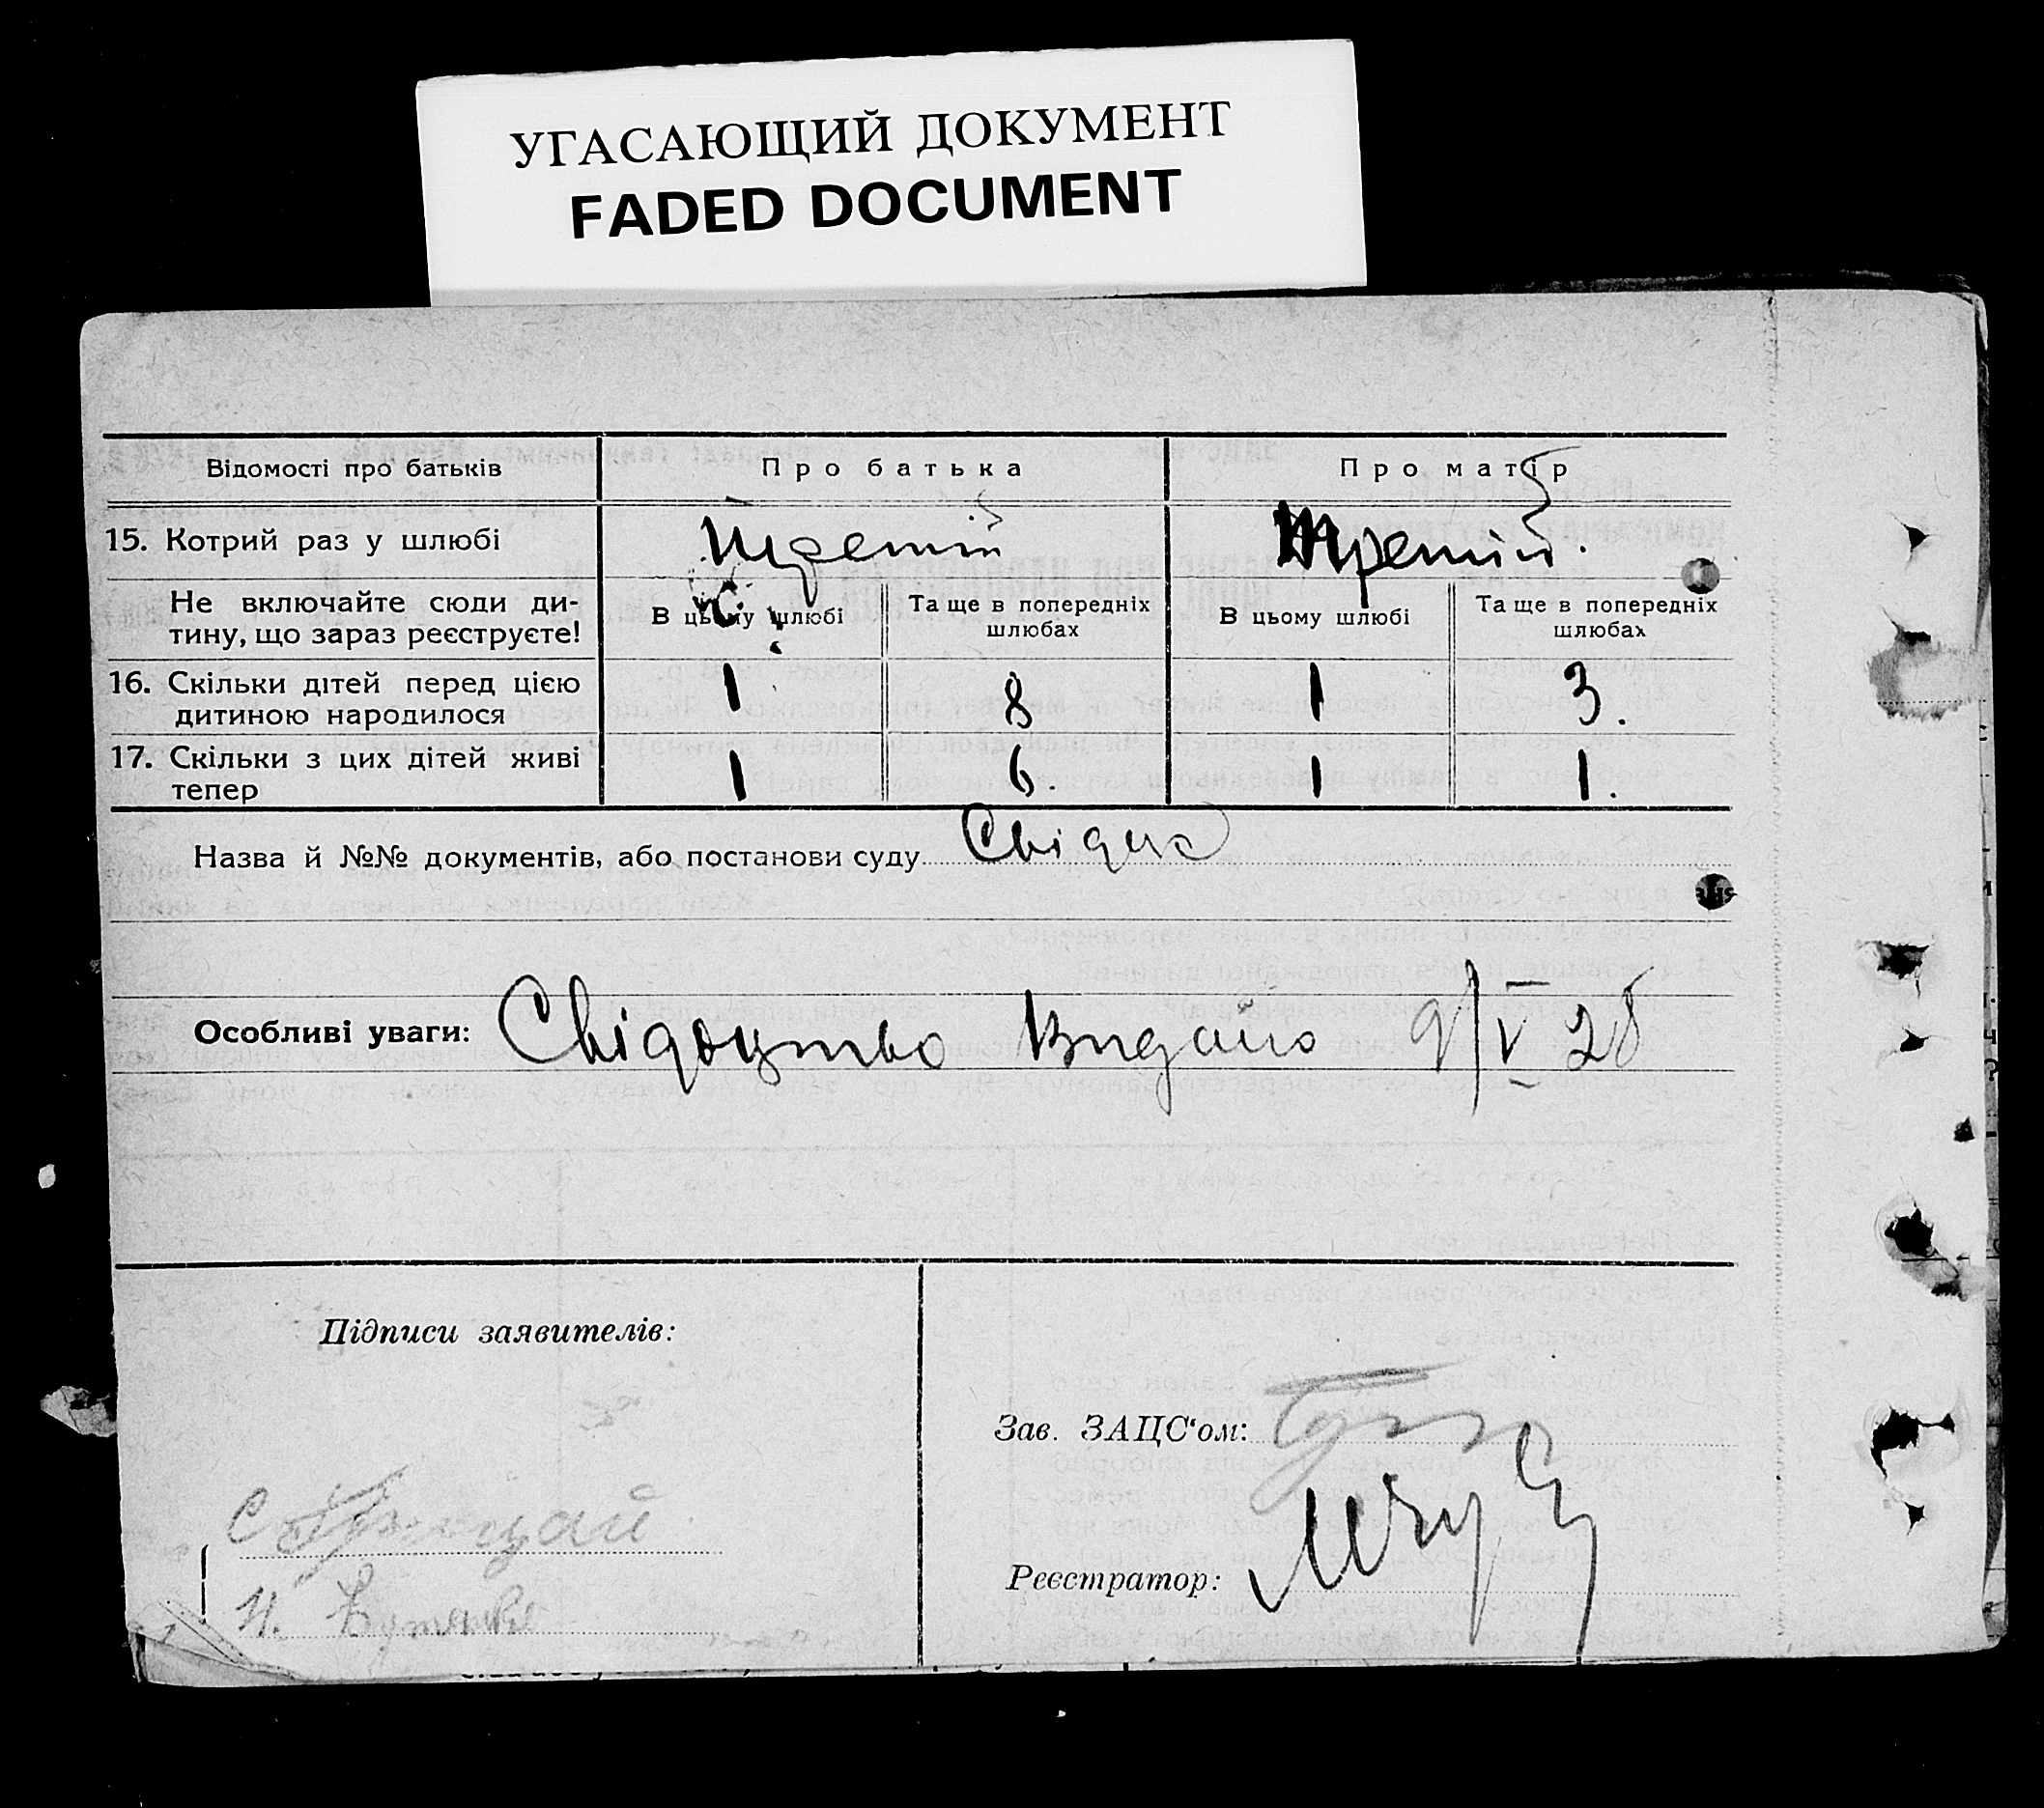 УГАСАЮЩИЙ ДОКУМЕНТ
FADED DOCUMENT
Відомості про батьків
Про батька
Про матір
15. Котрий раз у шлюбі
Третій
Третій.
Не включайте сюди ди-
тину, що зараз реєструєте!
В цьому шлюбі
Та ще в попередніх
шлюбах
В цьому шлюбі
Та ще в попередніх
шлюбах
16. Скільки дітей перед цією
дитиною народилося
1
8
1
3.
17. Скільки з цих дітей живі
тепер
1
6.
1
1.
Назва й №№ документів, або постанови суду
Особливі уваги: Свідоцтво Видано 9/V 28
Підписи заявителів:
Зав. ЗАЦС'ом:
Реєстратор: